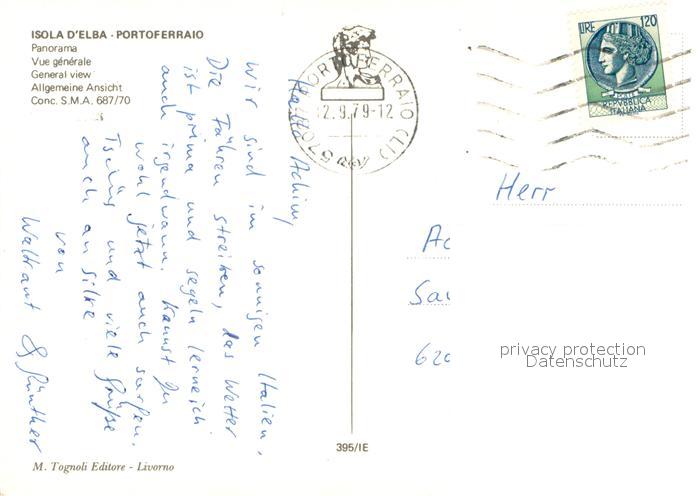 ISOLA D'ELBA - PORTOFERRAIO
Panorama
Vue générale
General view
Allgemeine Ansicht
Conc. S.M.A. 687/70
Hallo Achim,
wir sind im sonnigen Italien.
Die Fähren streiken, das Wetter
ist prima und segeln lerne ich
auch irgendwann. Kannst Du
wohl jetzt auch surfen.
Tschüß und viele Grüße
auch an Silke
von
Waltraut & Günther
PORTOFERRAIO (LI)
12.9.79-12
57037
LIRE 120
POSTE
REPVBBLICA
ITALIANA
Herr
Ac
Sau
620
privacy protection
Datenschutz
395/IE
M. Tognoli Editore - Livorno